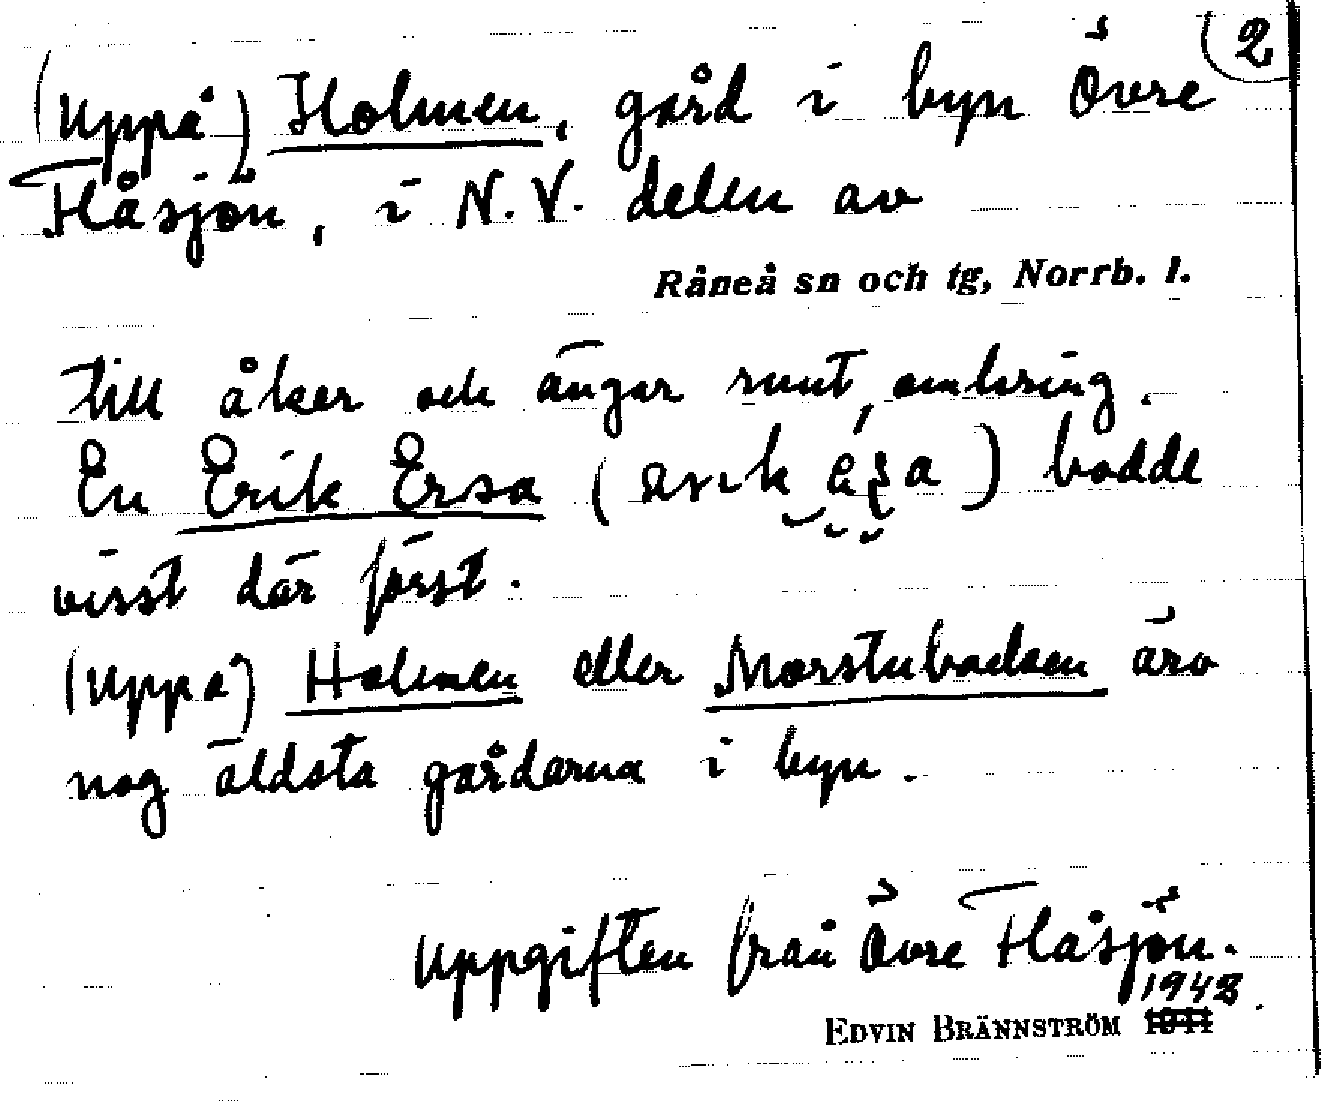 2
(Uppå) Holmen, gård i byn Övre
Flåsjön, i N.V. delen av
Råneå sn och tg, Norrb. l.
till åker och ängar runt omkring.
En Erik Ersa ( ) bodde
visst där först.
(Uppå) Holmen eller Morstubacken äro
nog äldsta gårdarna i byn.
Uppgiften från Övre Flåsjön.
1942
EDVIN BRÄNNSTRÖM 1941